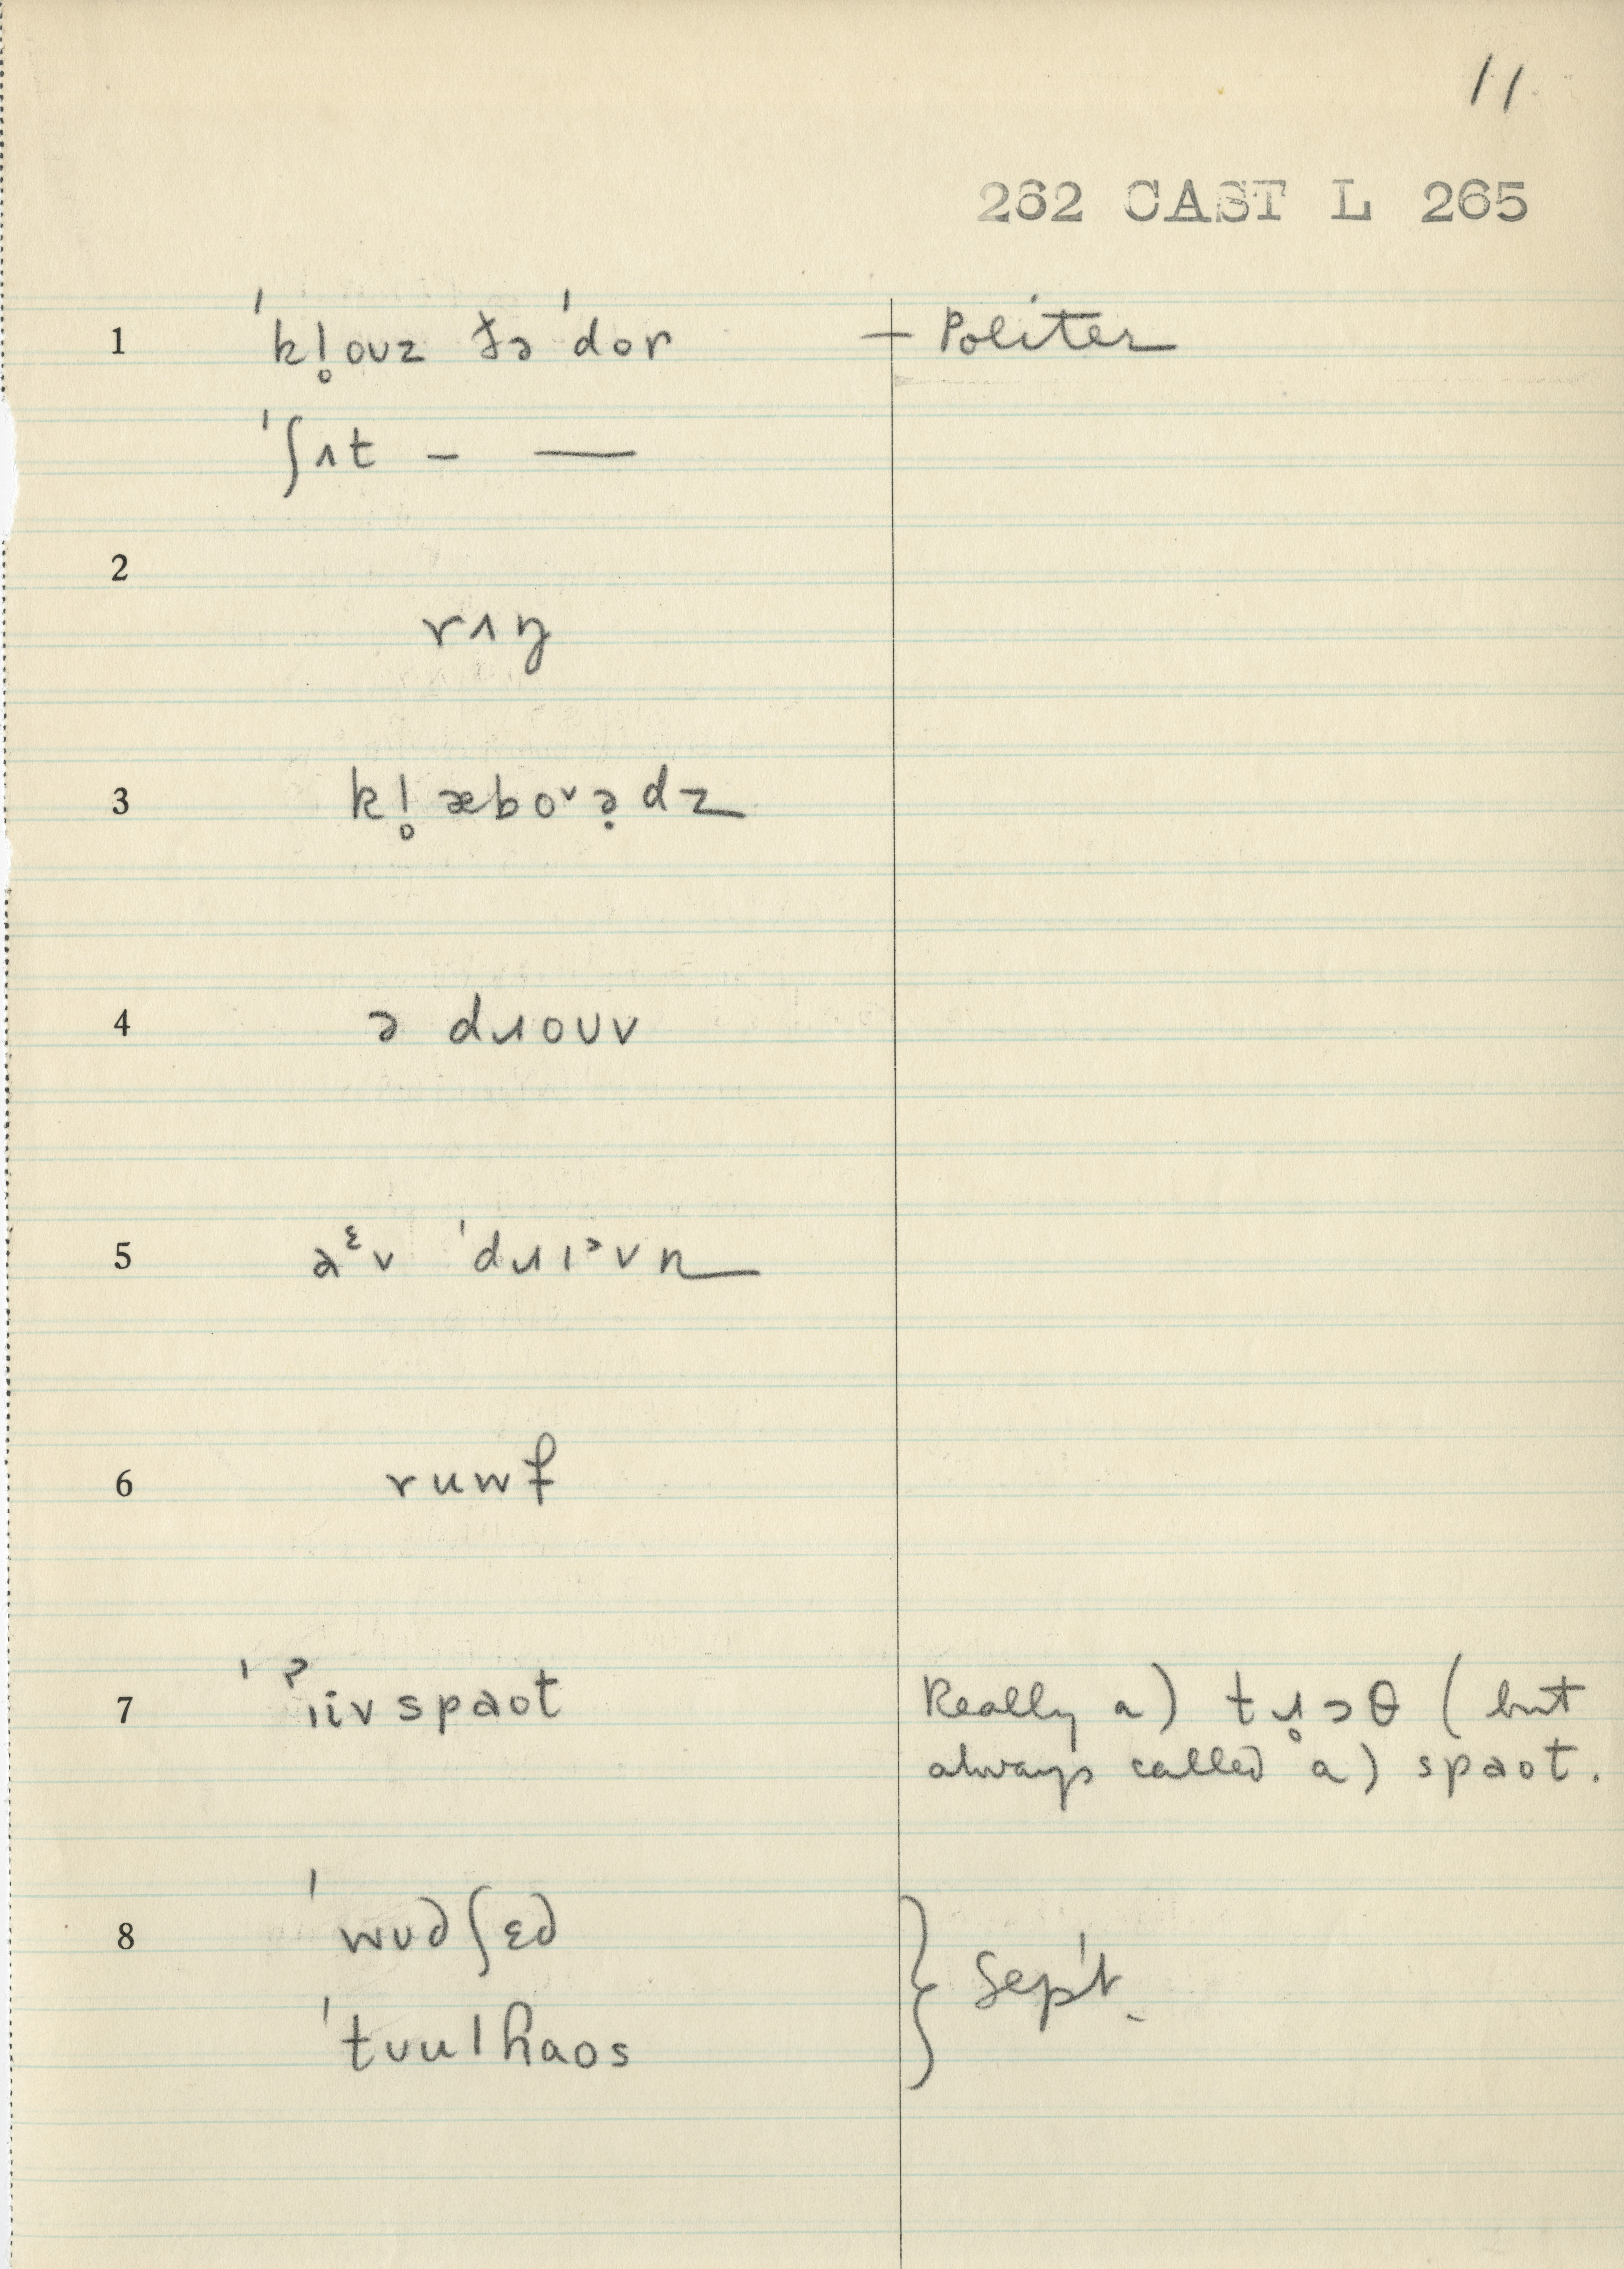 11.
262 CAST L 265
1 ˈkl̥oʊz ðə ˈdor — Politer
ˈʃɪt – —
2
rɪŋ
3 kl̥æboʷə̣dz
4 ə dɹoʊv
5 aᵋv ˈdɹɪᵊvn
6 ruwf
7 ˈˀiivspaot Really a) tɹ̥ɔθ (but
always called a) spaot.
8 ˈwʊdʃɛd } Sep't.
ˈtuulhaos